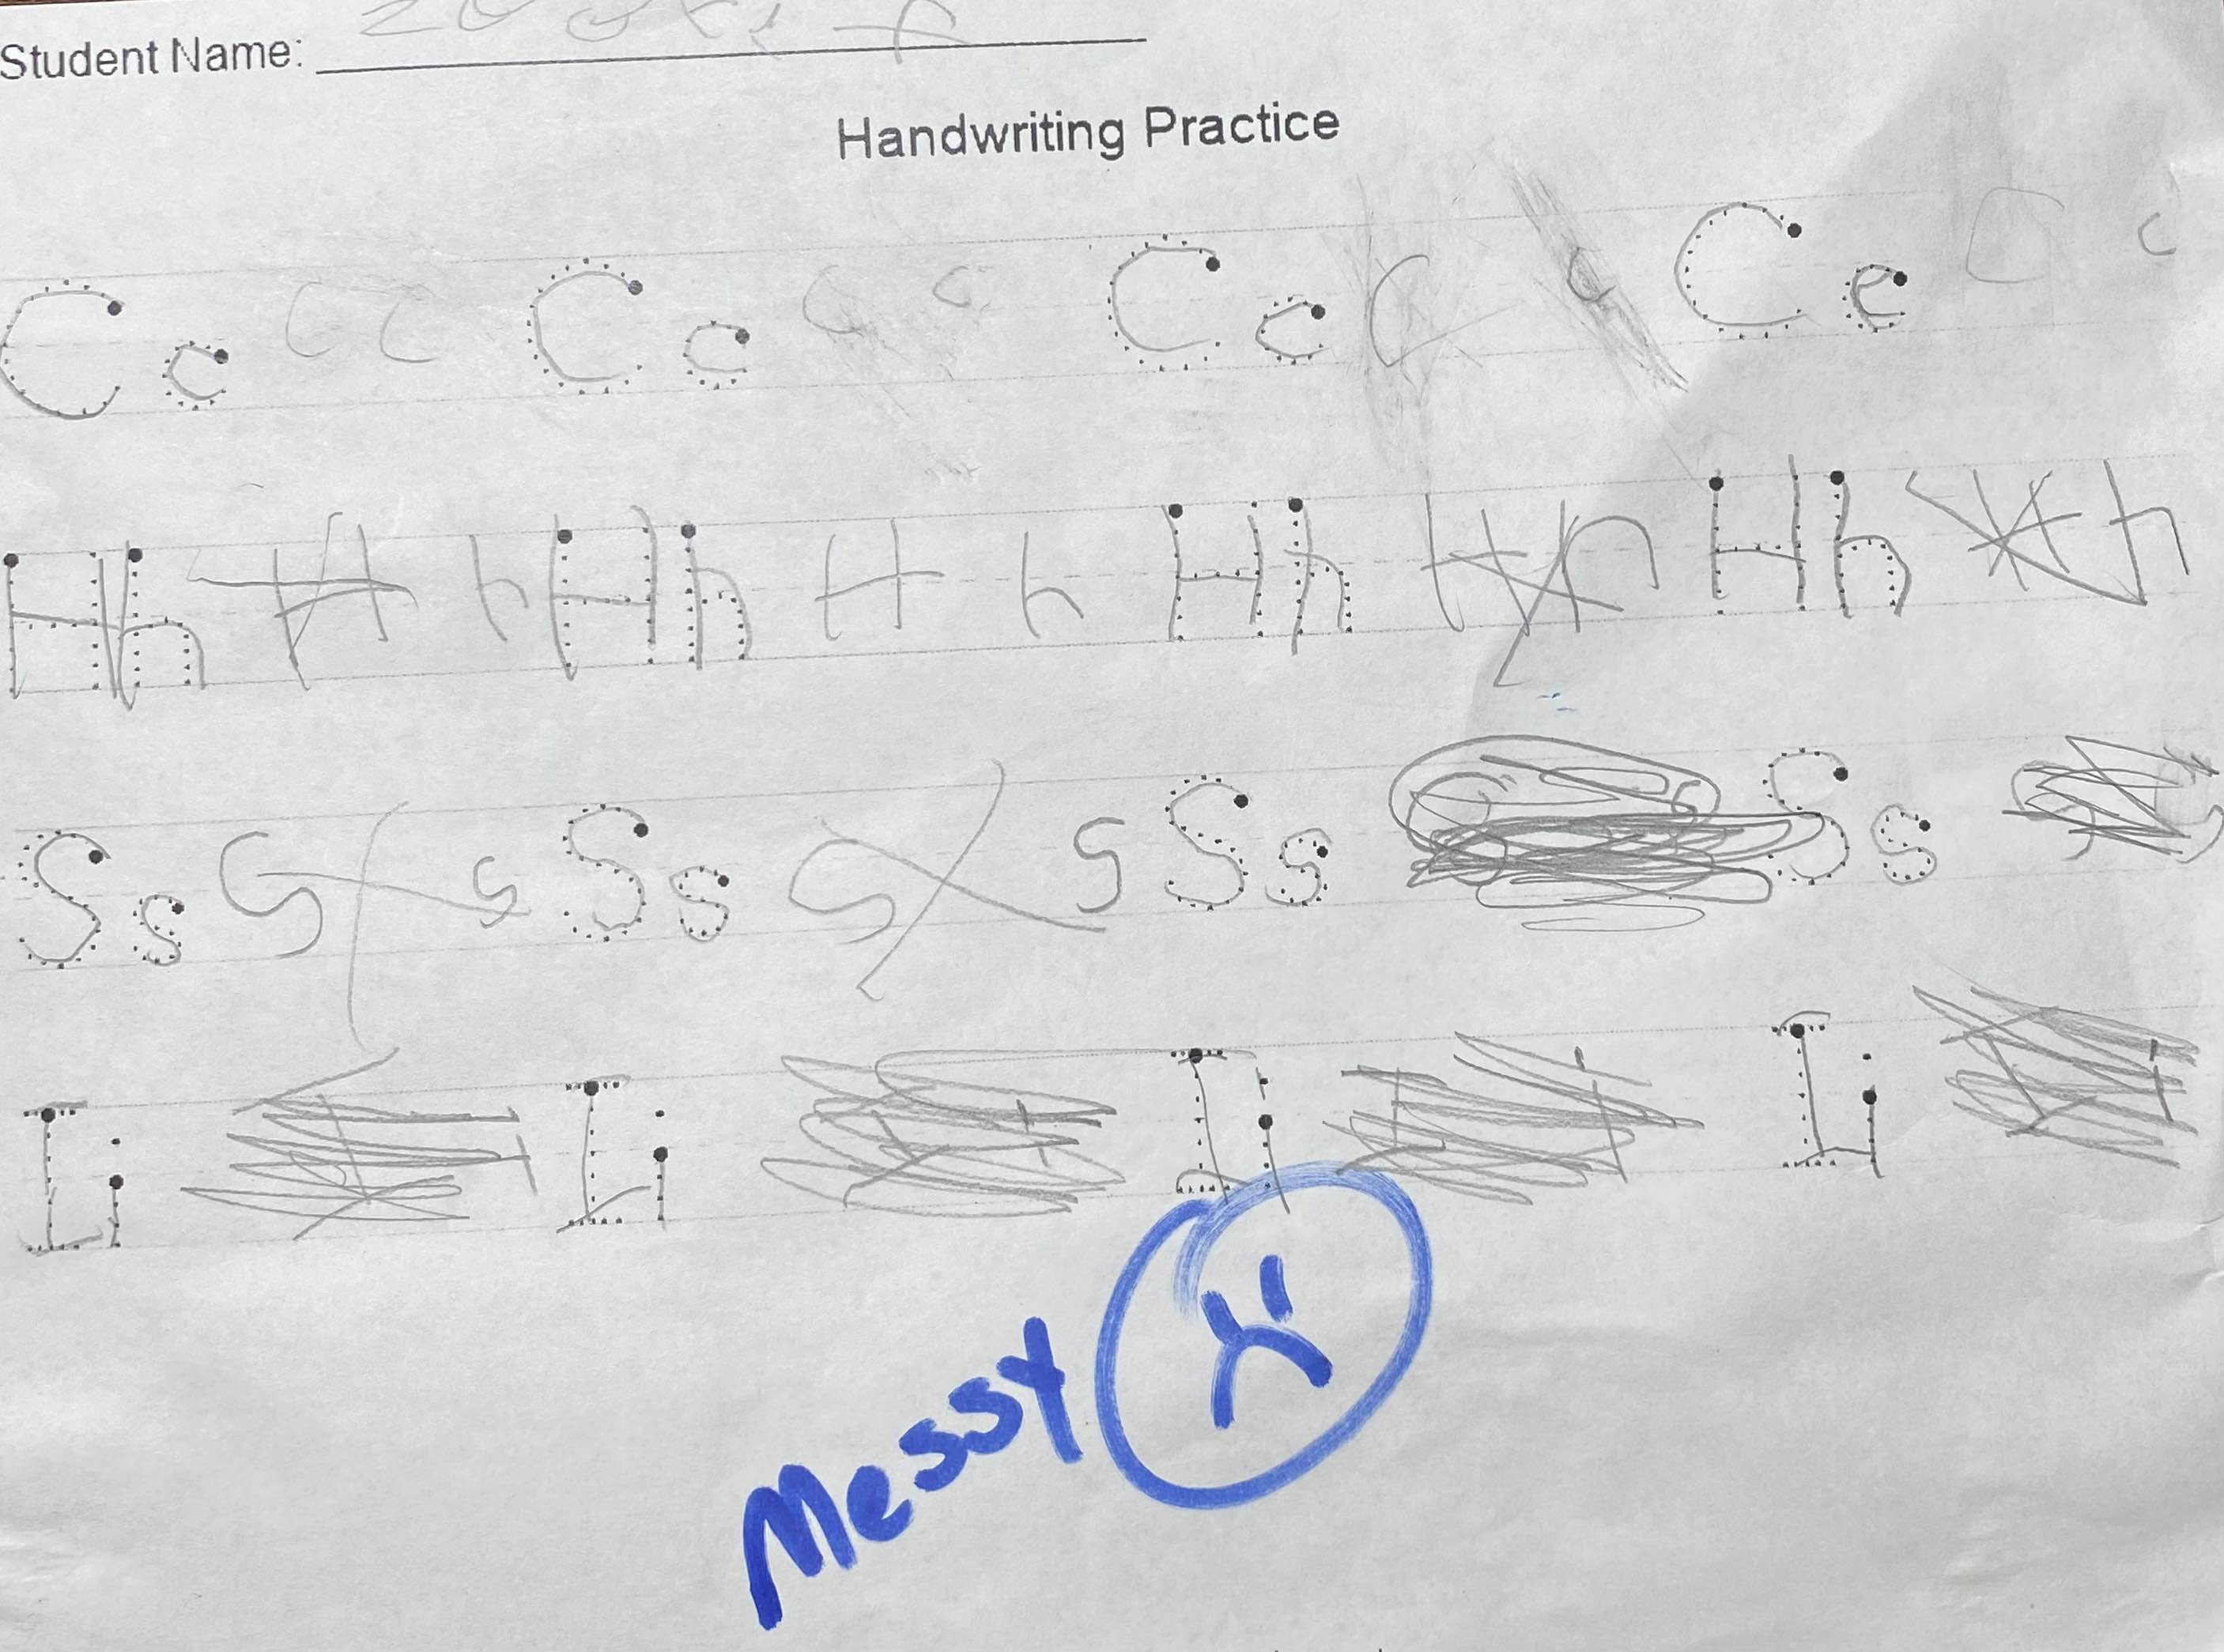 Student Name:
Handwriting Practice
Cc C C Cc C c Cc C c Cc C c
Hh H h Hh H h Hh H h Hh H h
Ss S s Ss S s Ss Ss
Ii Ii Ii Ii
Messy